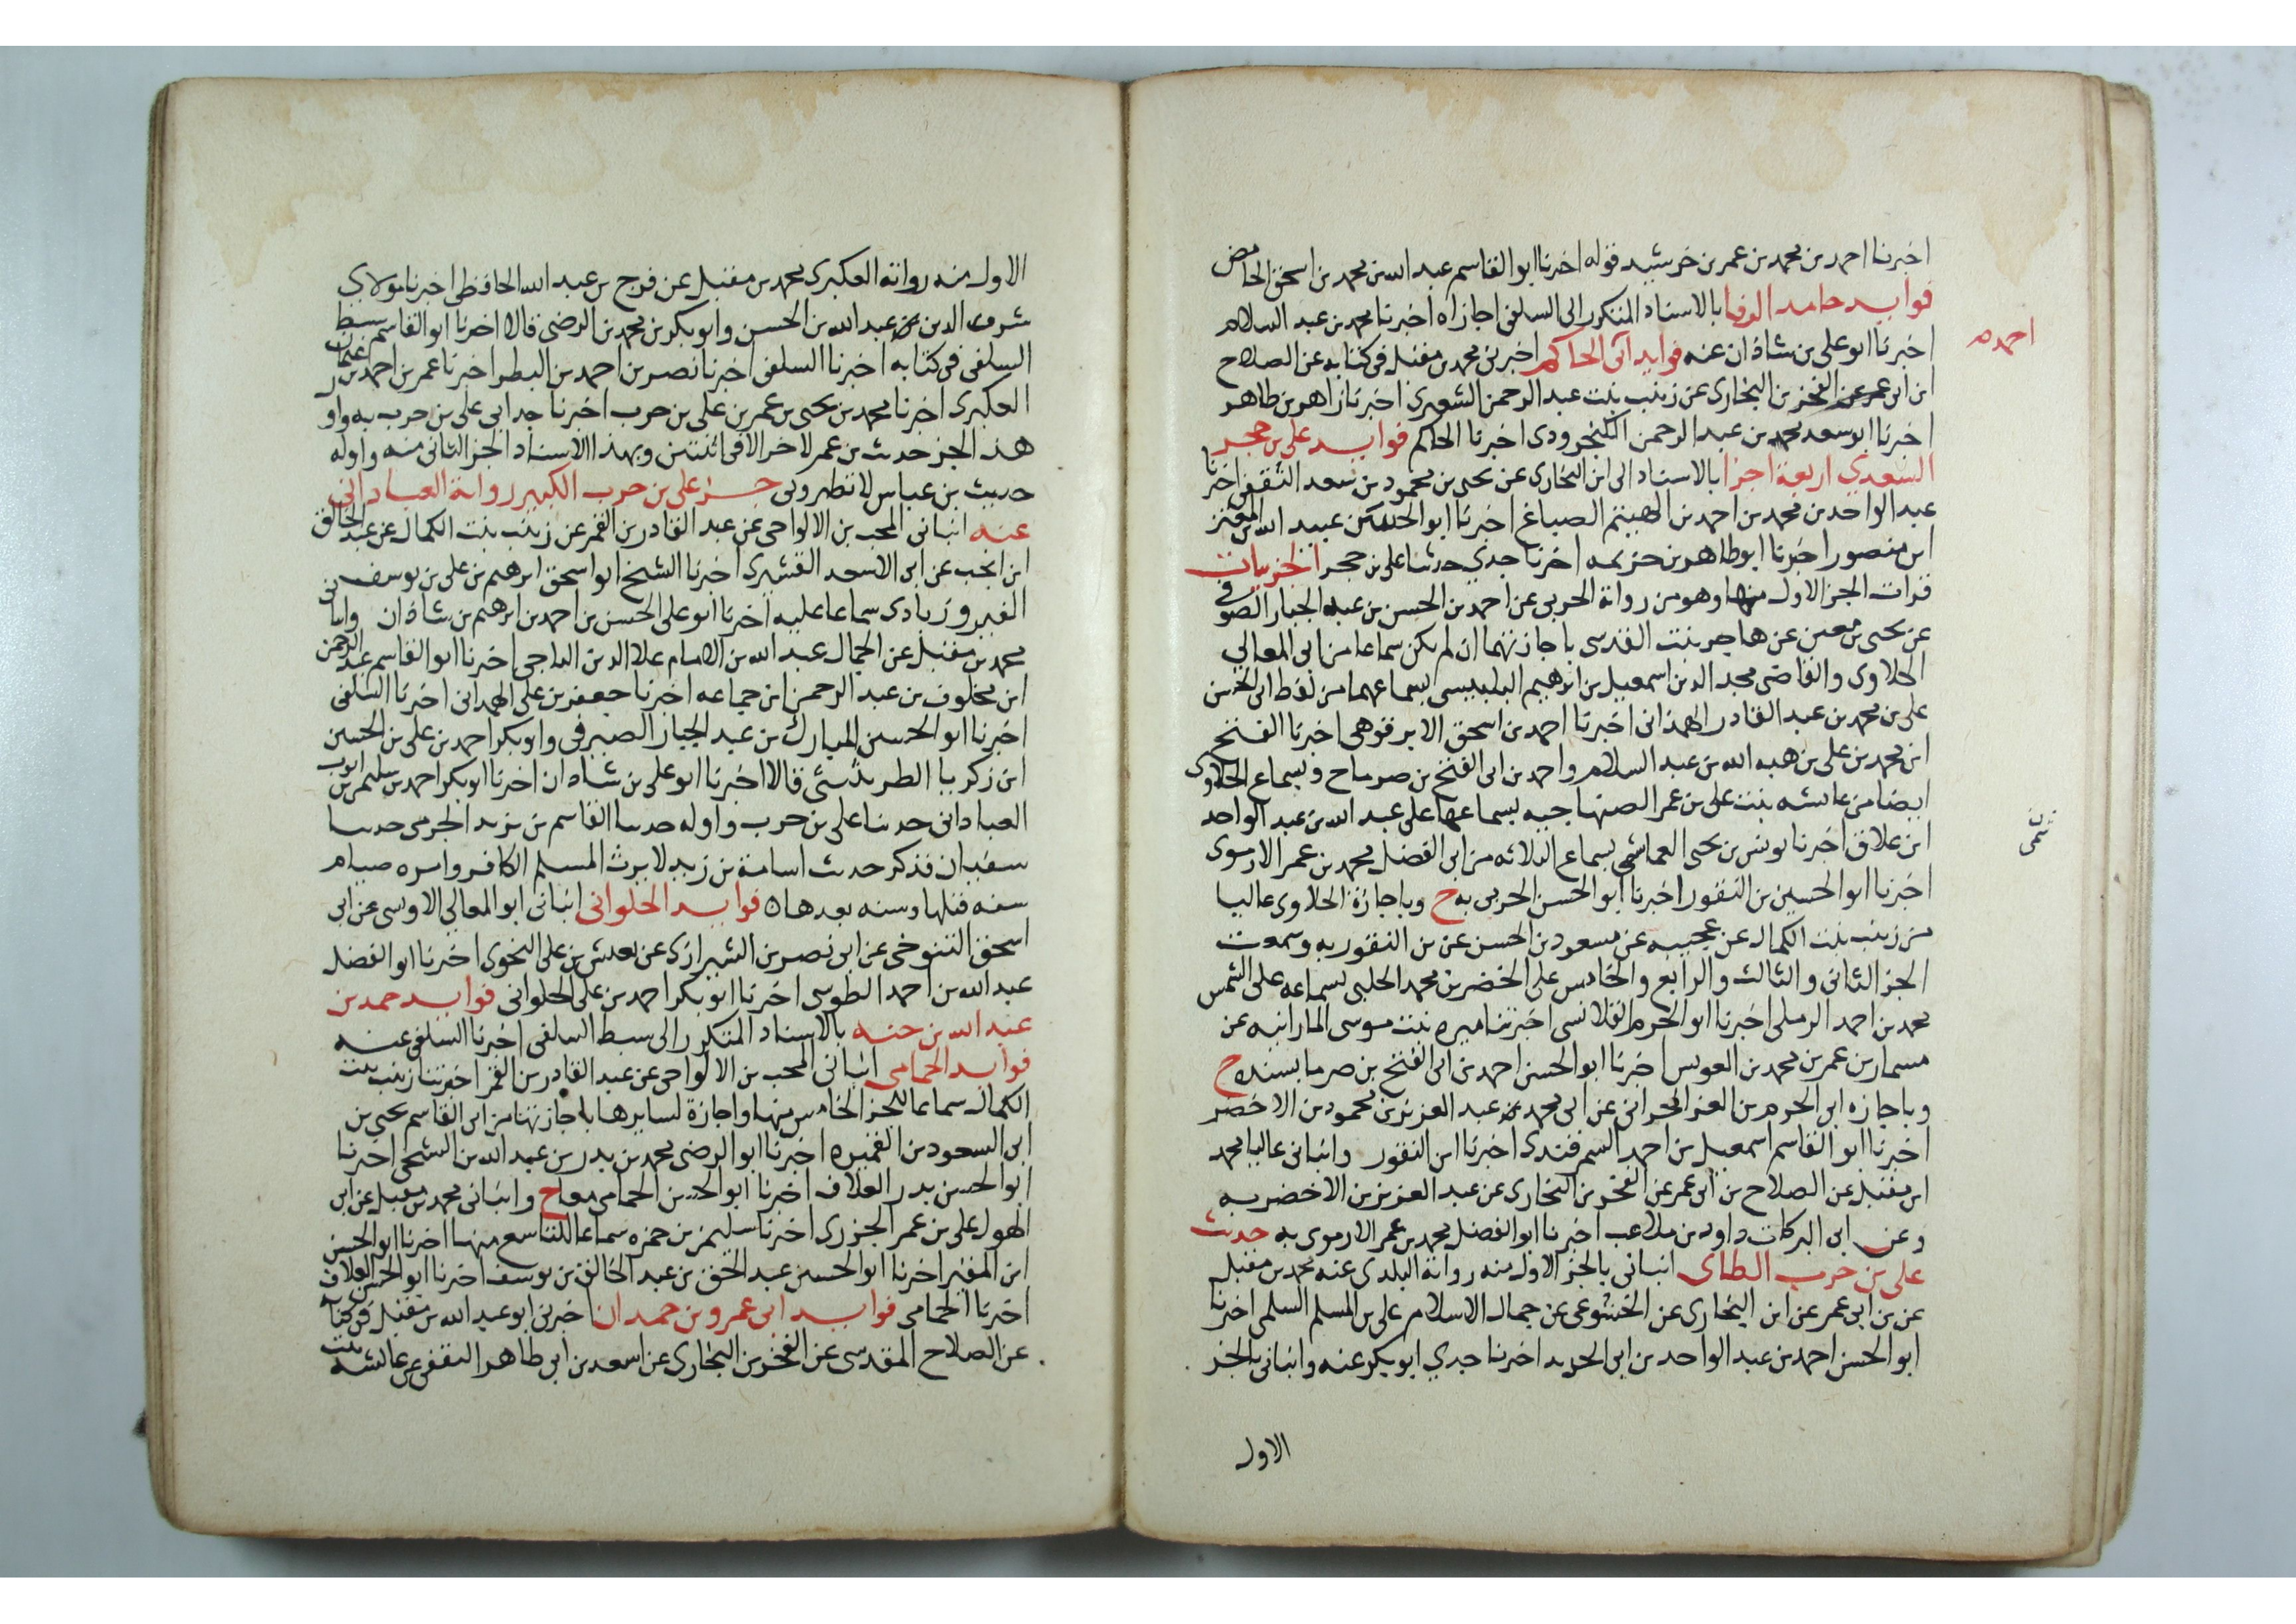 اخبرنا احمد بن محمد بن عمر بن خرشيد قوله اخبرنا ابو القاسم عبد الله بن محمد بن اسحق الحامض
فوايد حامد الرفا بالاسناد المتكرر الى السلفى اجازاه اخبرنا محمد بن عبد السلام
احمد
اخبرنا ابو على بن شاذان عنه فوايد الحاكم اخبرنى محمد بن مقبل فى كتابه عن الصلاح
ابن ابى عمر عن الفخر بن البخارى عن زينب بنت عبد الرحمن الشعرى اخبرنا زاهر بن طاهر
اخبرنا ابو سعد محمد بن عبد الرحمن الكنجرودى اخبرنا الحاكم فوايد على بن حجر
السعدى اربعة اجزا بالاسناد الى ابن البخارى عن يحيى بن محمود بن سعد الثقفى اخبرنا
عبد الواحد بن محمد بن احمد بن الهيثم الصباغ اخبرنا ابو الحسن عبيد الله بن المعتز
ابن منصور اخبرنا ابو طاهر بن خزيمه اخبرنا جدي حدثنا على بن حجر الحربيات
قرات الجز الاول منها وهو من رواية الحربى عن احمد بن الحسن بن عبد الجبار الصوفى
عن يحيى بن معين عن هاجر بنت القدسى باجازتهما ان لم يكن سماعا من ابى المعالي
الحلاوى والقاضى مجد الدين اسمعيل بن ابرهيم البلبيسى بسماعهما من لفظ ابى الحسن
على بن محمد بن عبد القادر الهمدانى اخبرنا احمد بن اسحق الابرقوهى اخبرنا الفتح
ابن محمد بن على بن هبه الله بن عبد السلام واحمد بن ابى الفتح بن صرماح وبسماع الحلاوى
ايضا من عايشه بنت على بن عمر الصنهاجيه بسماعها على عبد الله بن عبد الواحد
ابن علاق اخبرنا يونس بن يحيى الهاشمى بسماع الثلاثه من ابى الفضل محمد بن عمر الارموى
اخبرنا ابو الحسين بن النقور اخبرنا ابو الحسن الحربى به ح وباجازة الحلاوى عاليا
من زينب بنت الكمال عن عجيبه عن مسعود بن الحسن عن بن النقور به وسمعت
الجز الثانى والثالث والرابع والخامس على الخضر بن محمد الحلبى بسماعه على الشمس
محمد بن احمد الرملى اخبرنا ابو الحرم القلانسى اخبرتنا ميره بنت موسى المارانيه عن
مسمار بن عمر بن محمد بن العويس اخبرنا ابو الحسن احمد بن ابى الفتح بن صرما بسنده ح
وباجازه ابى الحرم من العز الحرانى عن ابى محمد بن عبد العزيز بن محمود بن الاخضر
اخبرنا ابو القاسم اسمعيل بن احمد السمرقندى اخبرنا ابن النقور وانبانى عاليا محمد
ابن مقبل عن الصلاح بن ابى عمر عن الفخر بن البخارى عن عبد العزيز بن الاخضر به
وعن ابى البركات داود بن ملاعب اخبرنا ابو الفضل محمد بن عمر الارموى به حديث
على بن حرب الطاى انبانى بالجز الاول منه رواية البلدى عنه محمد بن مقبل
عن بن ابى عمر عن ابن البخارى عن الخشوعى عن جمال الاسلام على بن المسلم السلمى اخبرنا
ابو الحسن احمد بن عبد الواحد بن ابى الحديد اخبرنا جدي ابو بكر عنه وانبانى بالجز
الاول
الاول منه رواية العكبرى محمد بن مقبل عن فرج بن عبد الله الحافظى اخبرنا مولاى
شرف الدين بن عبد الله بن الحسن وابو بكر بن محمد بن الرضى قالا اخبرنا ابو القاسم سبط
السلفى فى كتابه اخبرنا السلفى اخبرنا نصر بن احمد بن البطر اخبرنا عمر بن احمد بن عثمان
العكبرى اخبرنا محمد بن يحيى بن عمر بن على بن حرب اخبرنا جد ابى على بن حرب به واو
هذ الجز حديث بن عمر لاخر الا فى اثنتين وبهذا الاسناد الجز الثانى منه واوله
حديث بن عباس لا تطرونى جز على بن حرب الكبير رواية العبادانى
عنه انبانى المحب بن الالواحى عن عبد القادر بن القمر عن زينب بنت الكمال عن عبد الخالق
ابن انجب عن ابى الاسعد القشيرى اخبرنا الشيخ ابو اسحق ابرهيم بن على بن يوسف بن
الفيروزبادى سماعا عليه اخبرنا ابو على الحسن بن احمد بن ابرهيم بن شاذان وانبا
محمد بن مقبل عن الجمال عبد الله بن الامام علا الدين الباجى اخبرنا ابو القاسم عبد الرحمن
ابن مخلوف بن عبد الرحمن بن جماعه اخبرنا جعفر بن على الهمدانى اخبرنا السلفى
اخبرنا ابو الحسين المبارك بن عبد الجبار الصيرفى وابو بكر احمد بن على بن الحسين
ابن زكريا الطريثيثى قالا اخبرنا ابو على بن شاذان اخبرنا ابو بكر احمد بن سليمن بن ايوب
العبادانى حدثنا على بن حرب واوله حدثنا القاسم بن يزيد الجرمى حدثنا
سفيان فذكر حديث اسامة بن زيد لا يرث المسلم الكافر واسره صيام
سنه قبلها وسنه بعدها ه فوايد الحلوانى انبانى ابو المعالي الاوسى عن ابى
اسحق التنوخى عن ابى نصر بن الشيرازى عن يعيش بن على النحوى اخبرنا ابو الفضل
عبد الله بن احمد الطوسى اخبرنا ابو بكر احمد بن على الحلوانى فوايد حمد بن
عبد الله بن حنه بالاسناد المتكرر الى سبط السلفى اخبرنا السلفى عنه
فوايد الحمامى انبانى المحب بن الالواحى عن عبد القادر بن القمر اخبرتنا زينب بنت
الكمال سماعا للجز الخامس منها واجازة لسايرها باجازتها من ابى القاسم يحيى بن
ابى السعود بن القميره اخبرنا ابو الرضى محمد بن بدر بن عبد الله بن الشيحى اخبرنا
ابو الحسن بدر العلاف اخبرنا ابو الحسن الحمامى معاح وانبانى محمد بن مقبل عن ابى
الهول على بن عمر الجزرى اخبرنا سليمن بن حمزه سماعا للتاسع منها اخبرنا ابو الحسن
ابن المقير اخبرنا ابو الحسين عبد الحق بن عبد الخالق بن يوسف اخبرنا ابو الحسن العلاف
اخبرنا الحمامى فوايد ابى عمرو بن حمدان اخبرنى ابو عبد الله بن مقبل فى كتابه
عن الصلاح المقدسى عن الفخر بن البخارى عن اسعد بن ابى طاهر الثقفى عن عايشه بنت